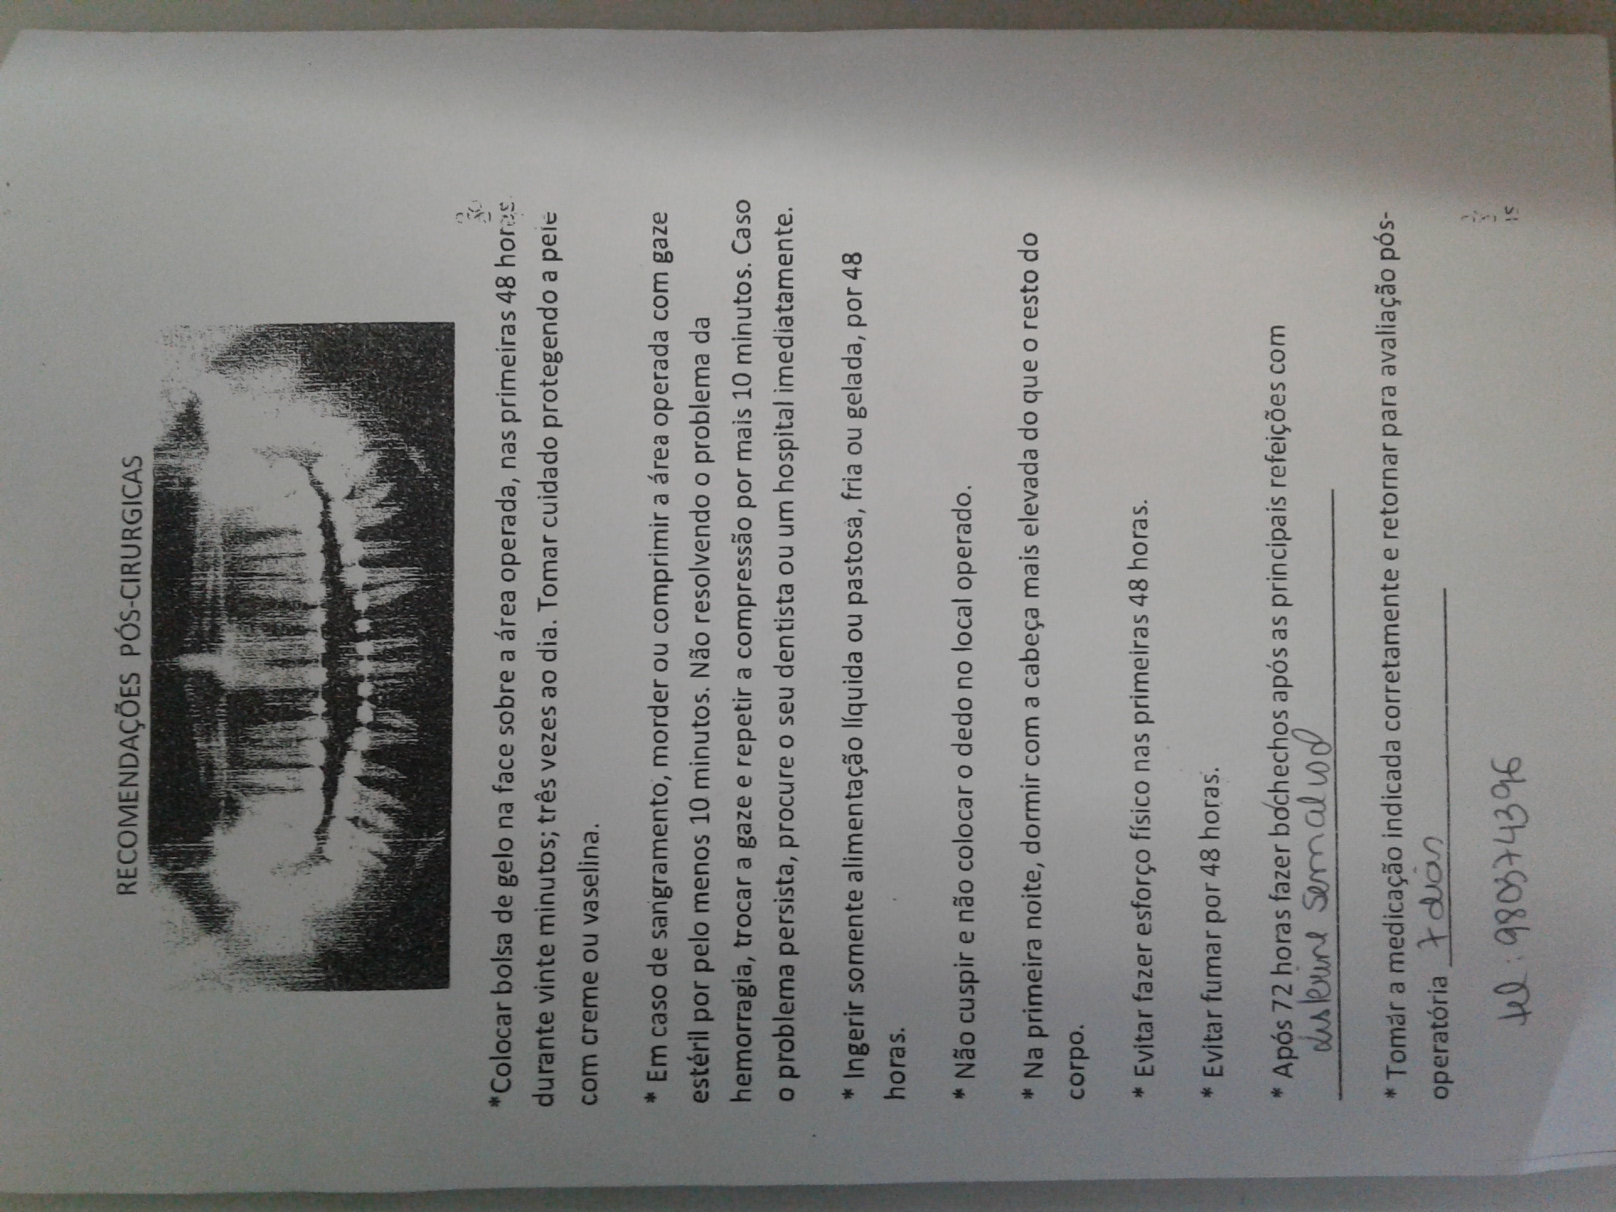 RECOMENDAÇÕES PÓS-CIRURGICAS
*Colocar bolsa de gelo na face sobre a área operada, nas primeiras 48 horas.
durante vinte minutos; três vezes ao dia. Tomar cuidado protegendo a pele
com creme ou vaselina.
* Em caso de sangramento, morder ou comprimir a área operada com gaze
estéril por pelo menos 10 minutos. Não resolvendo o problema da
hemorragia, trocar a gaze e repetir a compressão por mais 10 minutos. Caso
o problema persista, procure o seu dentista ou um hospital imediatamente.
* Ingerir somente alimentação líquida ou pastosa, fria ou gelada, por 48
horas.
* Não cuspir e não colocar o dedo no local operado.
* Na primeira noite, dormir com a cabeça mais elevada do que o resto do
corpo.
* Evitar fazer esforço físico nas primeiras 48 horas.
* Evitar fumar por 48 horas.
* Após 72 horas fazer bochechos após as principais refeições com
sem alcool
* Tomar a medicação indicada corretamente e retornar para avaliação pós-
operatória 7 dias
tel: 980374396